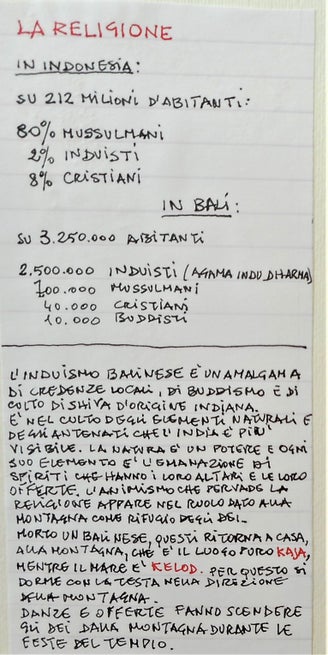 LA RELIGIONE
IN INDONESIA:
SU 212 MILIONI D'ABITANTI:
80% MUSSULMANI
2% INDUISTI
8% CRISTIANI
IN BALI:
SU 3.250.000 ABITANTI
2.500.000 INDUISTI (AGAMA INDU DHARMA)
700.000 MUSSULMANI
40.000 CRISTIANI
10.000 BUDDISTI
L'INDUISMO BALINESE È UN AMALGAMA
DI CREDENZE LOCALI, DI BUDDISMO E DI
CULTO DI SHIVA D'ORIGINE INDIANA.
È NEL CULTO DEGLI ELEMENTI NATURALI E
DEGLI ANTENATI CHE L'INDIA E' PIU'
VISIBILE. LA NATURA E' UN POTERE E OGNI
SUO ELEMENTO E' L'EMANAZIONE DI
SPIRITI CHE HANNO I LORO ALTARI E LE LORO
OFFERTE. L'ANIMISMO CHE PERVADE LA
RELIGIONE APPARE NEL RUOLO DATO ALLA
MONTAGNA COME RIFUGIO DEGLI DEI.
MORTO UN BALINESE, QUESTI RITORNA A CASA,
ALLA MONTAGNA, CHE E' IL LUOGO PURO KAJA,
MENTRE IL MARE E' KELOD. PER QUESTO SI
DORME CON LA TESTA NELLA DIREZIONE
DELLA MONTAGNA.
DANZE E OFFERTE FANNO SCENDERE
GLI DEI DALLA MONTAGNA DURANTE LE
FESTE DEL TEMPIO.